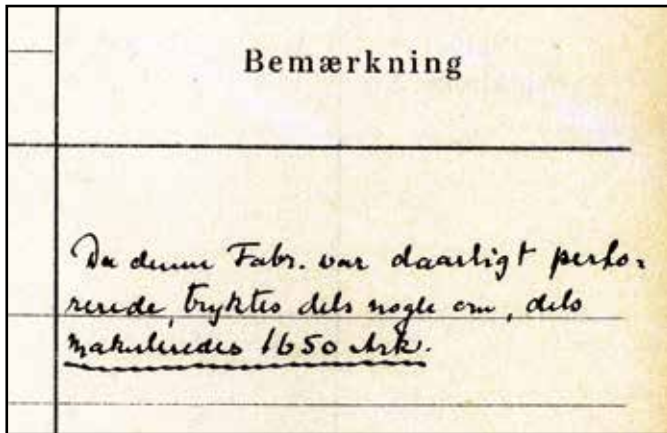 Bemærkning
Da denne Fabr. var daarligt perfo-
rerede, tryktes dels nogle om, dels
makuleredes 1650 Ark.